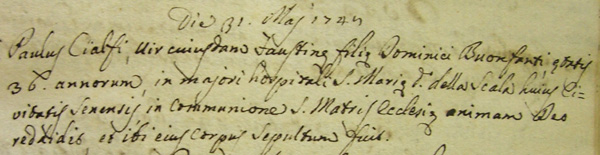 Die 31. Maj 1747
Paulus Cialfi, Vir cuiusdam Faustinę filię Dominici Buonfanti, ętatis
36. annorum, in majori hospitali S. Marię d. della Scala huius Ci-
vitatis Senensis in Communione S. Matris Ecclesię animam Deo
reddidit et ibi eius Corpus Sepultum fuit.